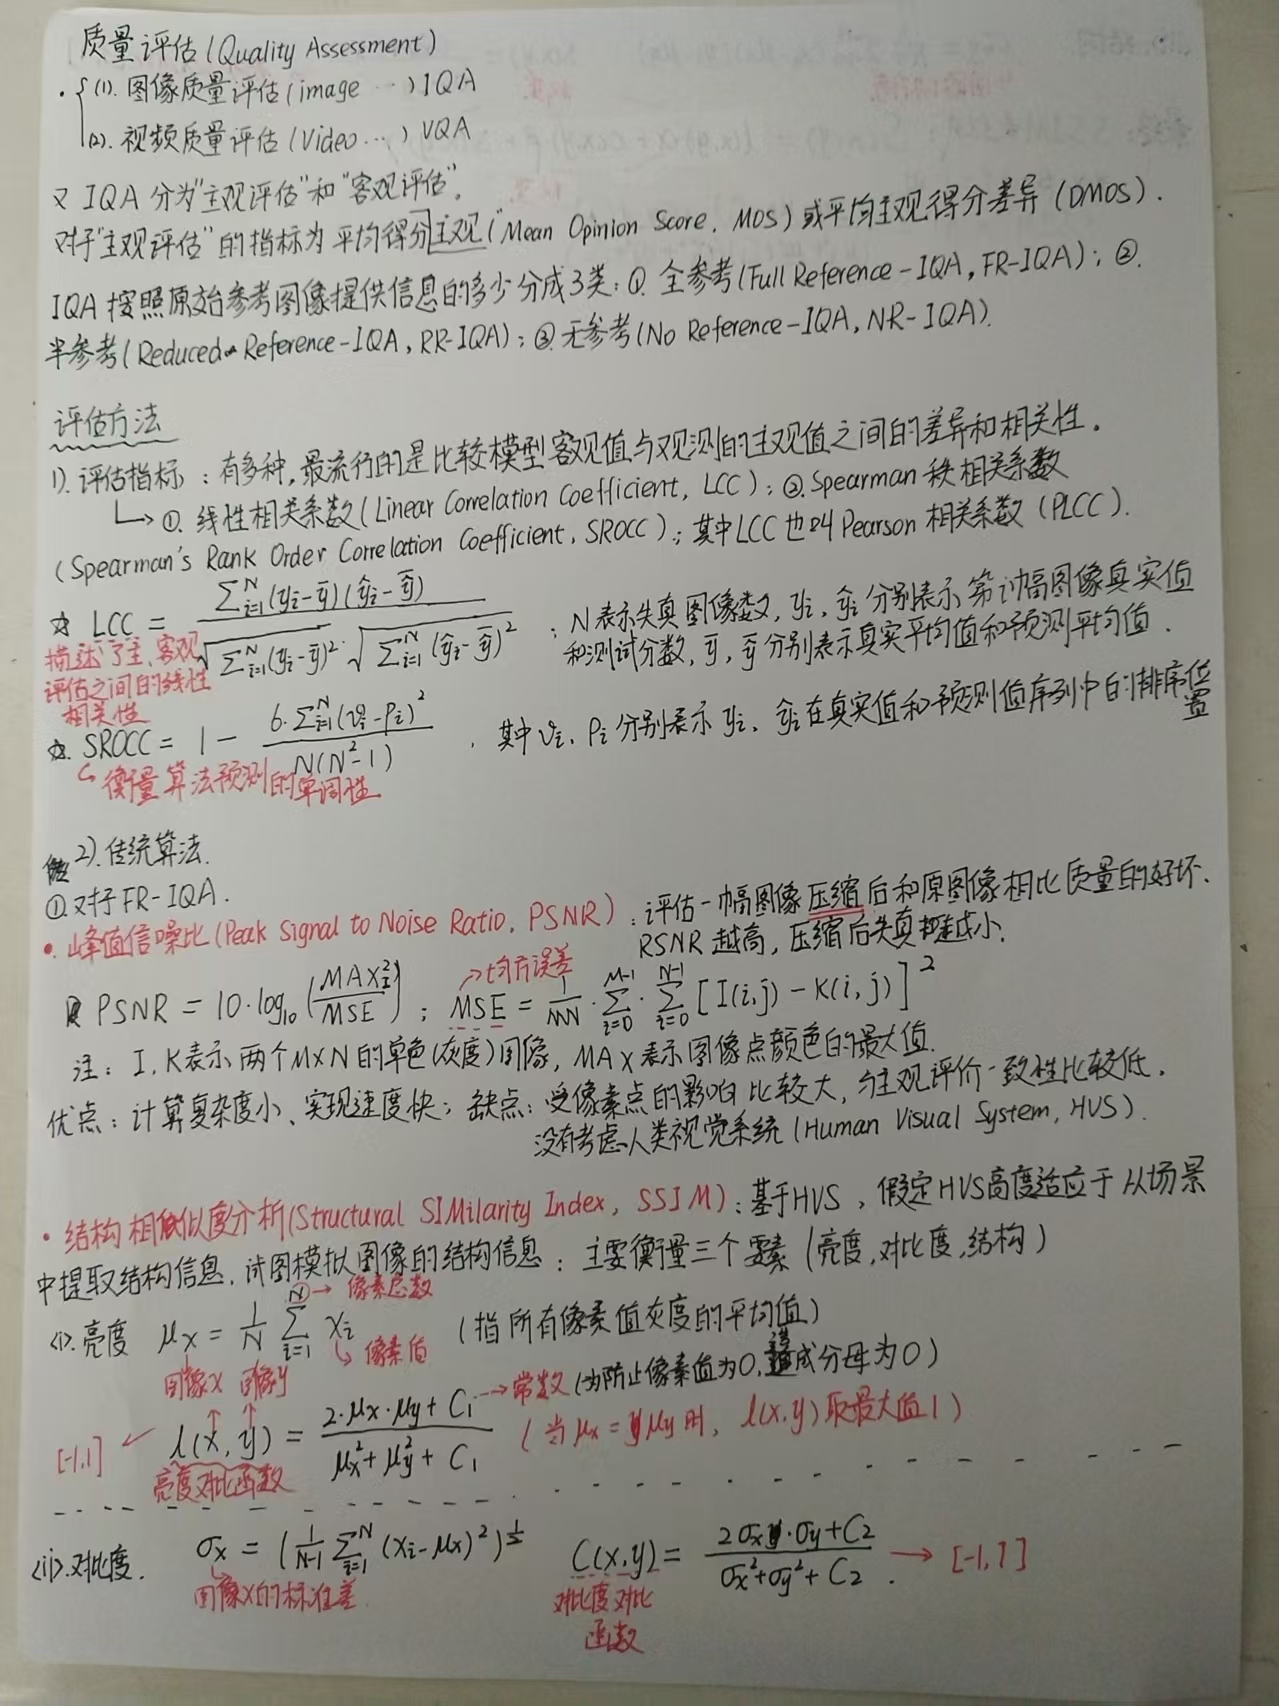 质量评估(Quality Assessment)
· { (1). 图像质量评估(image ···) IQA
(2). 视频质量评估(Video ···) VQA
又 IQA 分为"主观评估"和"客观评估"。
对于"主观评估"的指标为 平均得分主观(Mean Opinion Score, MOS) 或平均主观得分差异 (DMOS).
IQA 按照原始参考图像提供信息的多少分成3类: ①. 全参考(Full Reference-IQA, FR-IQA); ②.
半参考(Reduced Reference-IQA, RR-IQA); ③.无参考(No Reference-IQA, NR-IQA).
评估方法
1). 评估指标 : 有多种, 最流行的是比较模型客观值与观测的主观值之间的差异和相关性.
↳ ①. 线性相关系数(Linear Correlation Coefficient, LCC); ②. Spearman 秩相关系数
(Spearman's Rank Order Correlation Coefficient, SROCC); 其中LCC也叫Pearson 相关系数 (PLCC).
☆ LCC = \frac{\sum_{i=1}^{N}(y_i-\bar{y})(\hat{y}_i-\bar{\hat{y}})}{\sqrt{\sum_{i=1}^{N}(y_i-\bar{y})^2}·\sqrt{\sum_{i=1}^{N}(\hat{y}_i-\bar{\hat{y}})^2}} ; N表示失真图像数, y_i, ŷ_i 分别表示第i幅图像真实值
和测试分数, \bar{y}, \bar{\hat{y}} 分别表示真实平均值和预测平均值.
描述了主、客观
评估之间的线性
相关性
☆. SROCC = 1 - \frac{6·\sum_{i=1}^{N}(v_i-p_i)^2}{N(N^2-1)} , 其中 v_i, p_i 分别表示 y_i, ŷ_i 在真实值和预测值序列中的排序位置
↳ 衡量算法预测的单调性
2). 传统算法.
①.对于FR-IQA.
• 峰值信噪比(Peak Signal to Noise Ratio, PSNR) : 评估一幅图像压缩后和原图像相比质量的好坏.
RSNR 越高, 压缩后失真越小.
PSNR = 10·log_{10}(\frac{MAX_i^2}{MSE}) ; MSE = \frac{1}{MN}·\sum_{i=0}^{M-1}·\sum_{i=0}^{N-1}[I(i,j)-K(i,j)]^2
→均方误差
注: I, K表示两个M×N的单色(灰度)图像, MAX表示图像点颜色的最大值.
优点: 计算复杂度小、实现速度快; 缺点: 受像素点的影响比较大, 与主观评价一致性比较低.
没有考虑人类视觉系统(Human Visual System, HVS).
• 结构相似度分析(Structural SIMilarity Index, SSIM): 基于HVS, 假定HVS高度适应于从场景
中提取结构信息, 试图模拟图像的结构信息 : 主要衡量三个要素 (亮度, 对比度, 结构)
<i>.亮度 μ_x = \frac{1}{N}\sum_{i=1}^{N}x_i (指所有像素值灰度的平均值)
→ 像素总数
↳ 像素值
图像x 图像y
[-1,1] ← l(x, y) = \frac{2·μ_x·μ_y+C_1}{μ_x^2+μ_y^2+C_1} → 常数 (为防止像素值为0, 造成分母为0)
(当 μ_x = μ_y 时, l(x,y) 取最大值1)
亮度对比函数
<ii>.对比度. σ_x = (\frac{1}{N-1}\sum_{i=1}^{N}(x_i-μ_x)^2)^{\frac{1}{2}} C(x,y) = \frac{2σ_x·σ_y+C_2}{σ_x^2+σ_y^2+C_2} . → [-1,1]
图像x的标准差
对比度对比
函数